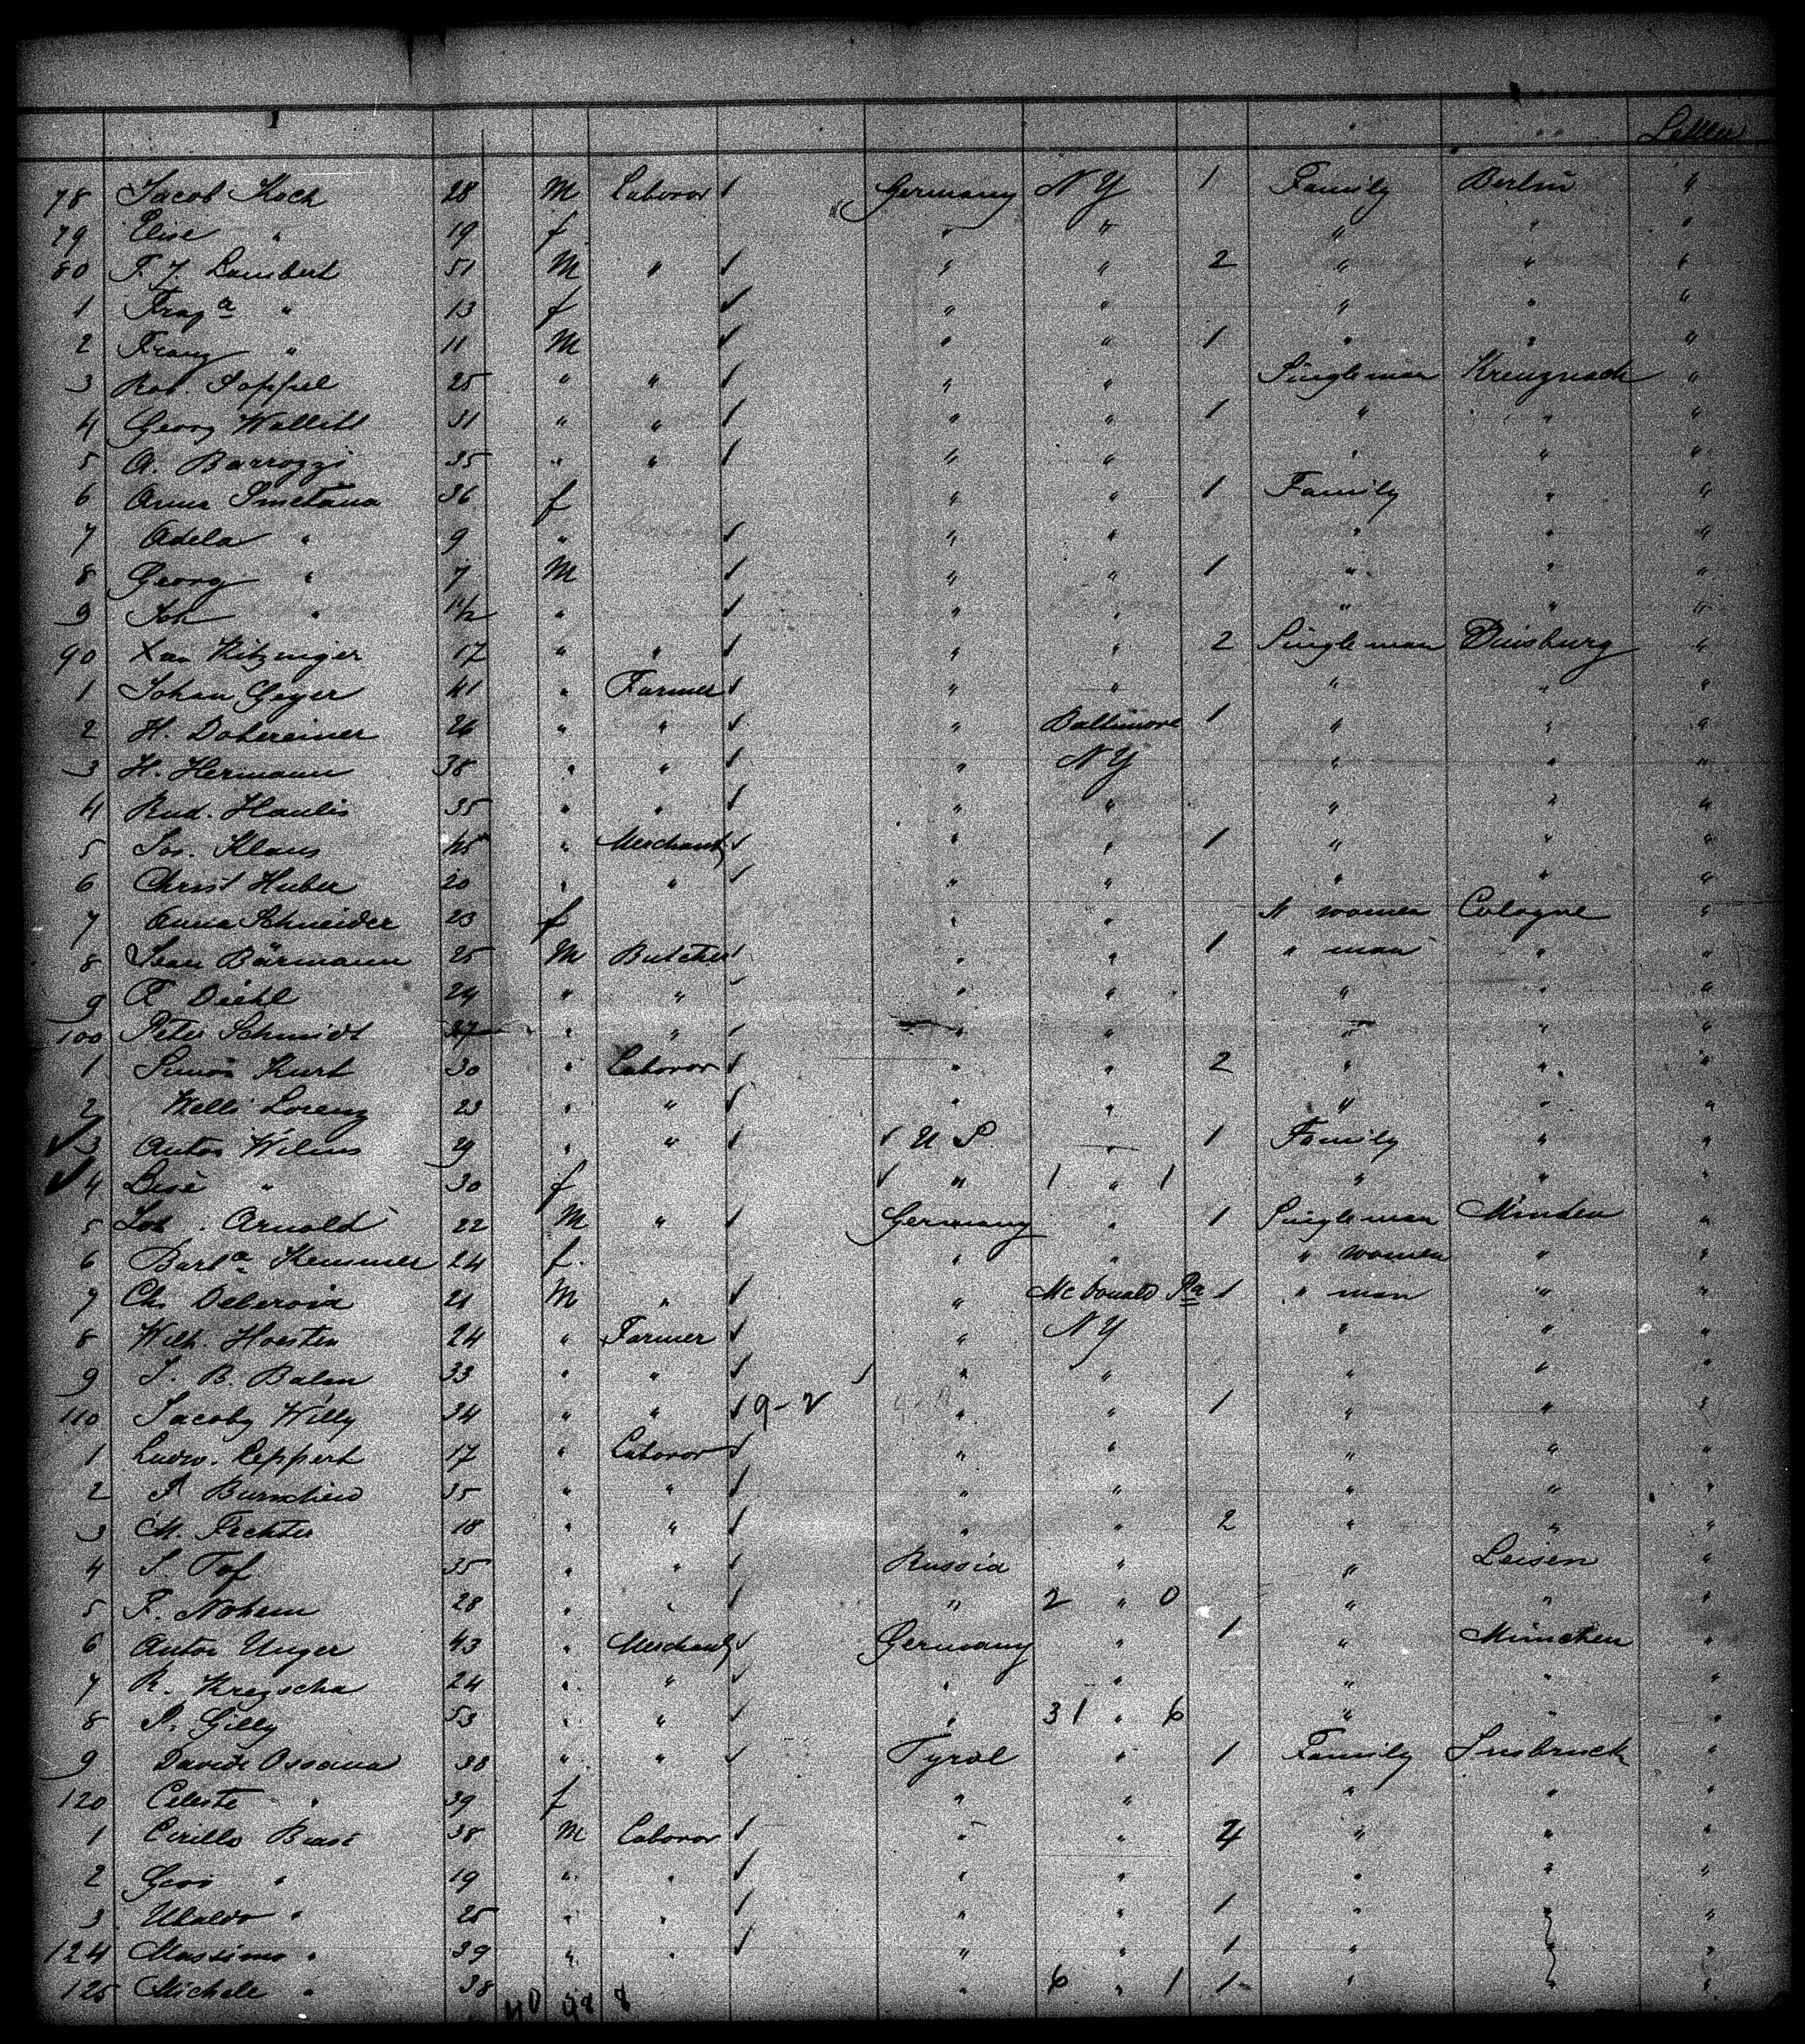 Letter
78 Jacob Koch 28 M Laboror Germany N Y 1 Family Berlin "
79 Elise " 19 f " " " " "
80 F. J. Lambert 51 M " " " 2 " " "
1 " 13 f " " " " "
2 Franz " 11 M " " 1 " " "
3 Rob. 25 " " " " Single man Kreuznach "
4 Georg 31 " " " " 1 " " "
5 A. Barrozzi 35 " " " " " " "
6 Anna Smetana 36 f " " 1 Family " "
7 Adela " 9 " " " " " "
8 Georg " 7 M " " 1 " " "
9 Joh " 1½ " " " " " "
90 Ritzinger 17 " " " " 2 Single man Duisburg "
1 Johan Geyer 41 " Farmer " " " " "
2 H. Dohereiner 24 " " " Baltimore 1 " " "
3 H. Hermann 38 " " " N Y " " "
4 Rud. 35 " " " " " " "
5 Jos. Klaus 45 " Merchant " " 1 " " "
6 Christ Huber 20 " " " " " " "
7 Anna Schneider 23 f " " women Cologne "
8 Jean Bärmann 25 M Butcher " " 1 " man " "
9 F. Diehl 24 " " " " " " "
100 Peter Schmidt 27 " " " " " " "
1 Simon Kurt 30 " Laboror " " 2 " " "
2 Lorenz 23 " " " " " " "
3 Anton Wilms 29 " " U S " 1 Family " "
4 Lise " 30 f " 1 " 1 " " "
5 Joh. Arnold 22 M " Germany " 1 Single man Minden "
6 Barba Kemmer 24 f. " " " women " "
7 Ch. 21 M " " McDonald Pa 1 " man " "
8 Wilh. Hoesten 24 " Farmer " N Y " " "
9 J. B. Balm 33 " " " " " " "
110 Jacoby Willy 34 " " 9-2 " " 1 " " "
1 Ludw. Leppert 17 " Laboror " " " " "
2 35 " " " " " " "
3 M. Fechter 18 " " " " 2 " " "
4 S. Tof 35 " " Russia " " Leisen "
5 F. Nohem 28 " " " 2 " 0 " " "
6 Anton Unger 43 " Merchant Germany " 1 " München "
7 R. Kregscha 24 " " " " " " "
8 P. Gilly 53 " " " 31 " 6 " " "
9 Davide Ossana 38 " " Tyrol " 1 Family Insbruck "
120 Celeste " 39 f " " " " "
1 Cirillo 38 M Laboror " " 4 " " "
2 " 19 " " " " " " "
3 Ubaldo " 25 " " " " 1 " " "
124 Massimo " 39 " " " " 1 " " "
125 Michele " 38 " 6 " 1 1 " " "